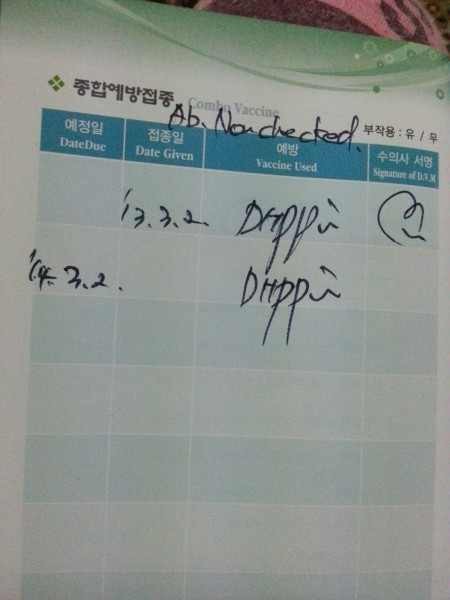 종합예방접종 Combo Vaccine
Ab. Non checked.
부작용 : 유 / 무
예정일 접종일 예방 수의사 서명
DateDue Date Given Vaccine Used Signature of D.V.M
'13.3.2. DHPPi
'14.3.2. DHPPi